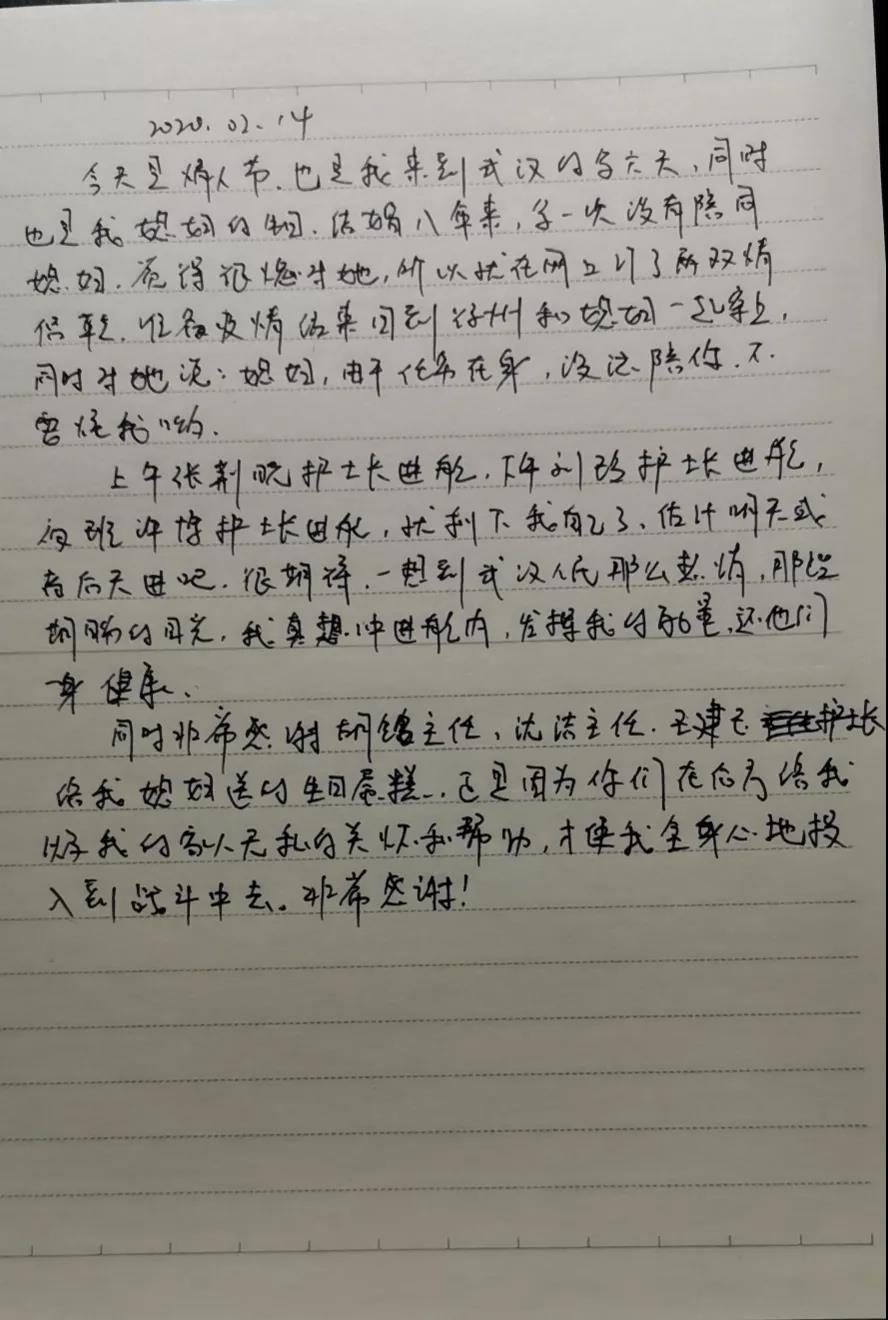 2020.02.14
今天是情人节.也是我来到武汉的第六天,同时
也是我媳妇的生日.结婚八年来,第一次没有陪同
媳妇.觉得很愧对她,所以就在网上订了两双情
侣鞋.准备疫情结束回到徐州和媳妇一起穿上,
同时对她说:媳妇,由于任务在身,没法陪你.不
要怪我哟.
上午张荆晓护士长进舱.下午刘玲护士长进舱,
夜班许博护士长进舱,就剩下我自己了、估计明天或
者后天进吧.很期待.一想到武汉人民那么热情,那些
期盼的目光,我真想冲进舱内,发挥我的能量,还他们
一身健康、
同时非常感谢主任、沈洁主任.护士长
给我媳妇送的生日蛋糕.正是因为你们在后方给我
以及我的家人无私的关怀和帮助,才使我全身心地投
入到战斗中去。非常感谢!